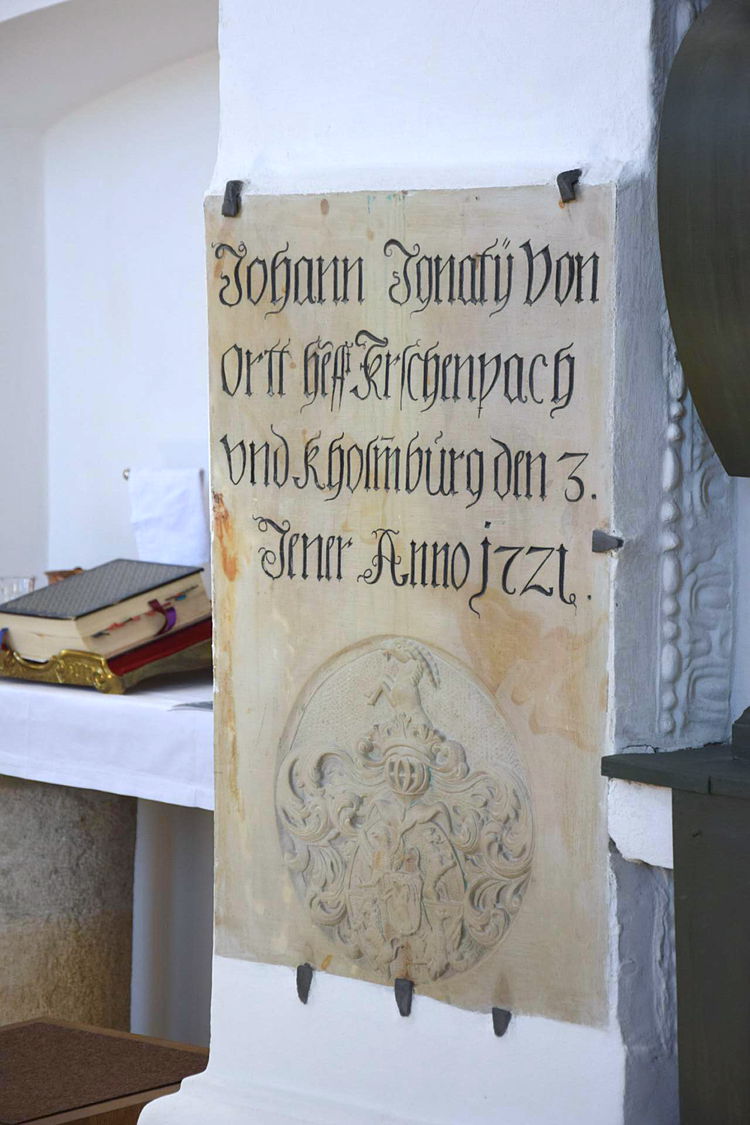 Johann Ignatÿ Von
Ortt heff Kerschenpach
vnd Kholm̄burg den 3.
Jener Anno 1721.